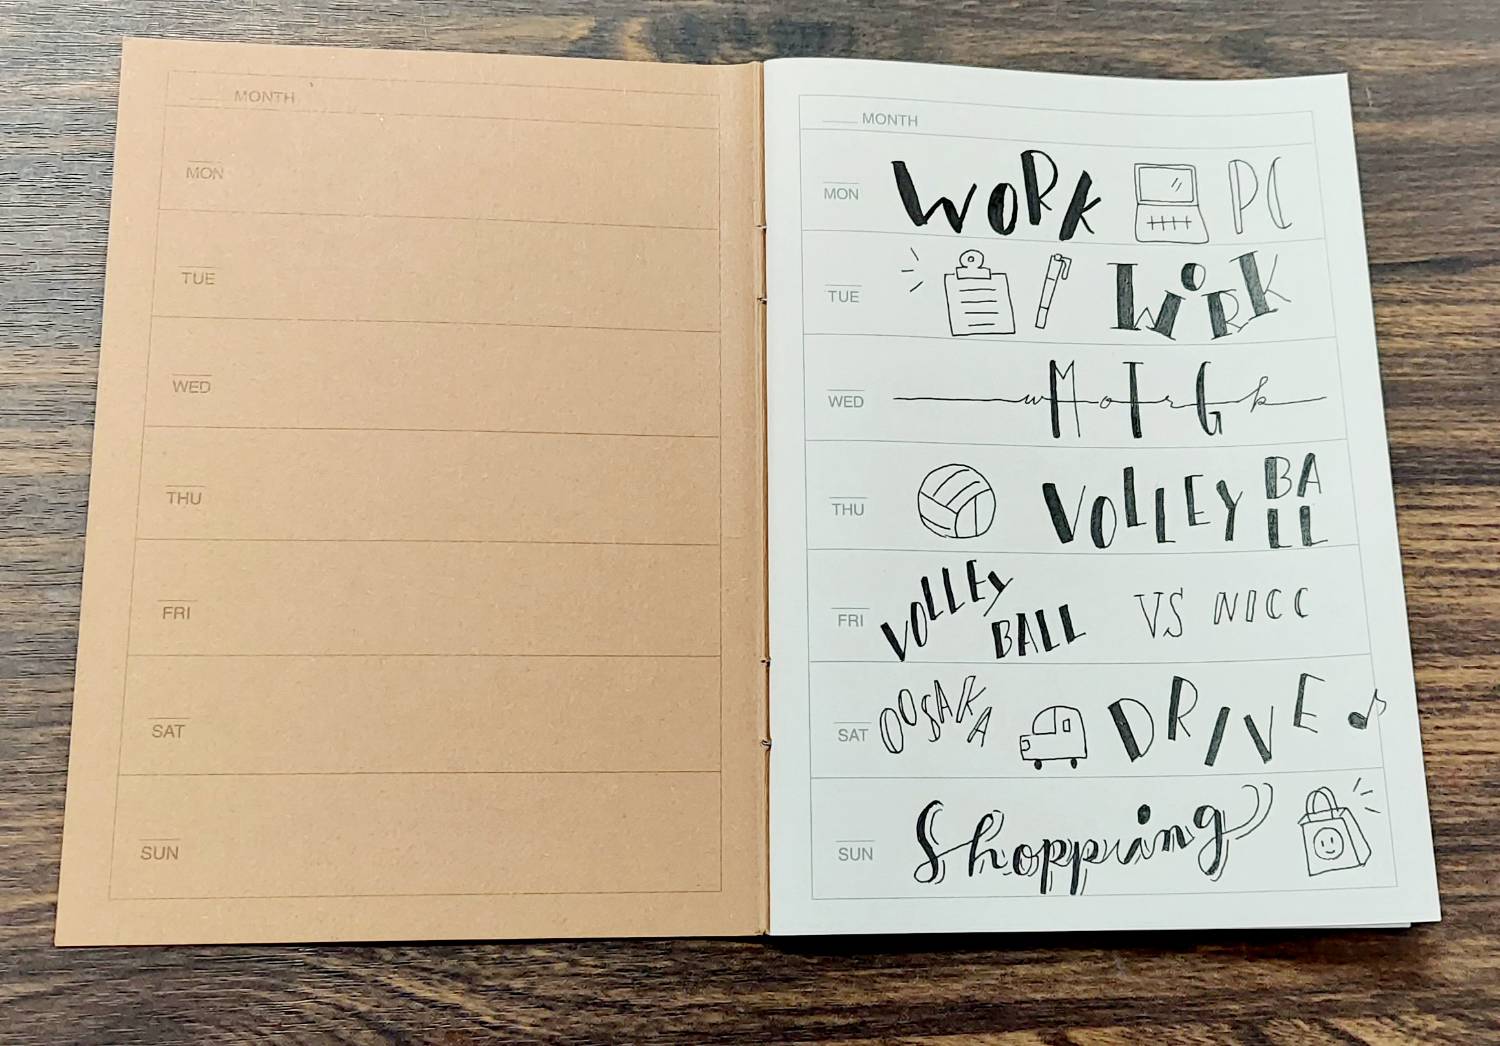 MONTH
MON
TUE
WED
THU
FRI
SAT
SUN
MONTH
MON WORK PC
TUE WORK
WED work MTG
THU VOLLEY BA
LL
FRI VOLLEY
BALL VS NICC
SAT OOSAKA DRIVE
SUN Shopping